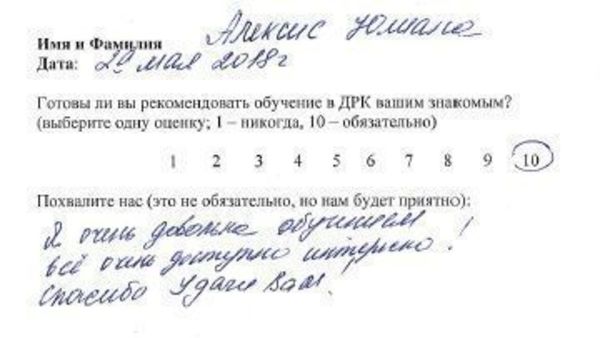 Имя и Фамилия Алексис Юлиана
Дата: 29 мая 2018 г
Готовы ли вы рекомендовать обучение в ДРК вашим знакомым?
(выберите одну оценку; 1 – никогда, 10 – обязательно)
1 2 3 4 5 6 7 8 9 10
Похвалите нас (это не обязательно, но нам будет приятно):
Я очень довольна обучением
всё очень доступно интересно!
Спасибо Удачи Вам!